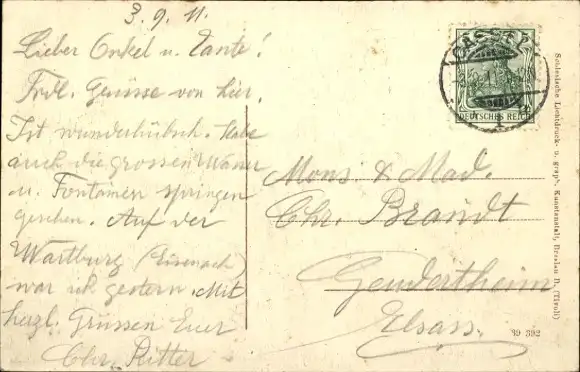 3.9.11.
Lieber Onkel u. Tante!
Frdl. Grüsse von hier.
Ist wunderhübsch. Habe
auch die grossen Wasser
u. Fontänen springen
gesehen. Auf der
Wartburg (Eisenach)
war ich gestern. Mit
herzl. Grüssen Euer
Chr. Ritter
CASSEL
DEUTSCHES REICH
1
Mons & Mad.
Chr. Brandt
Geudertheim
Elsass.
39 392
Schlesische Lichtdruck- u. graph. Kunstanstalt, Breslau D. (Tivoli)